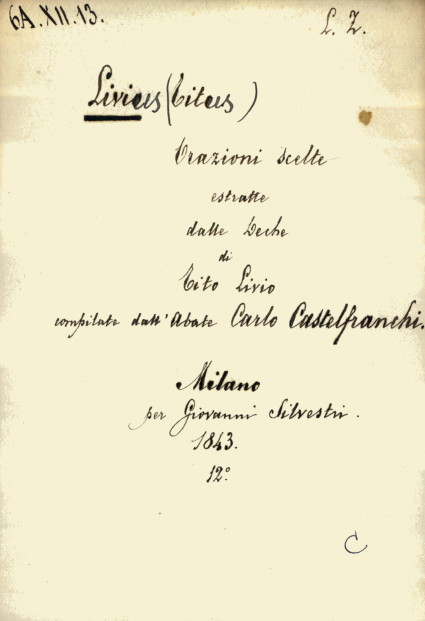 6A.XII.13.
L. Z.
Livius (Titus)
Orazioni scelte
estratte
dalle Deche
di
Tito Livio
compilate dall'Abate Carlo Castelfranchi.
Milano
per Giovanni Silvestri.
1843.
12°
C